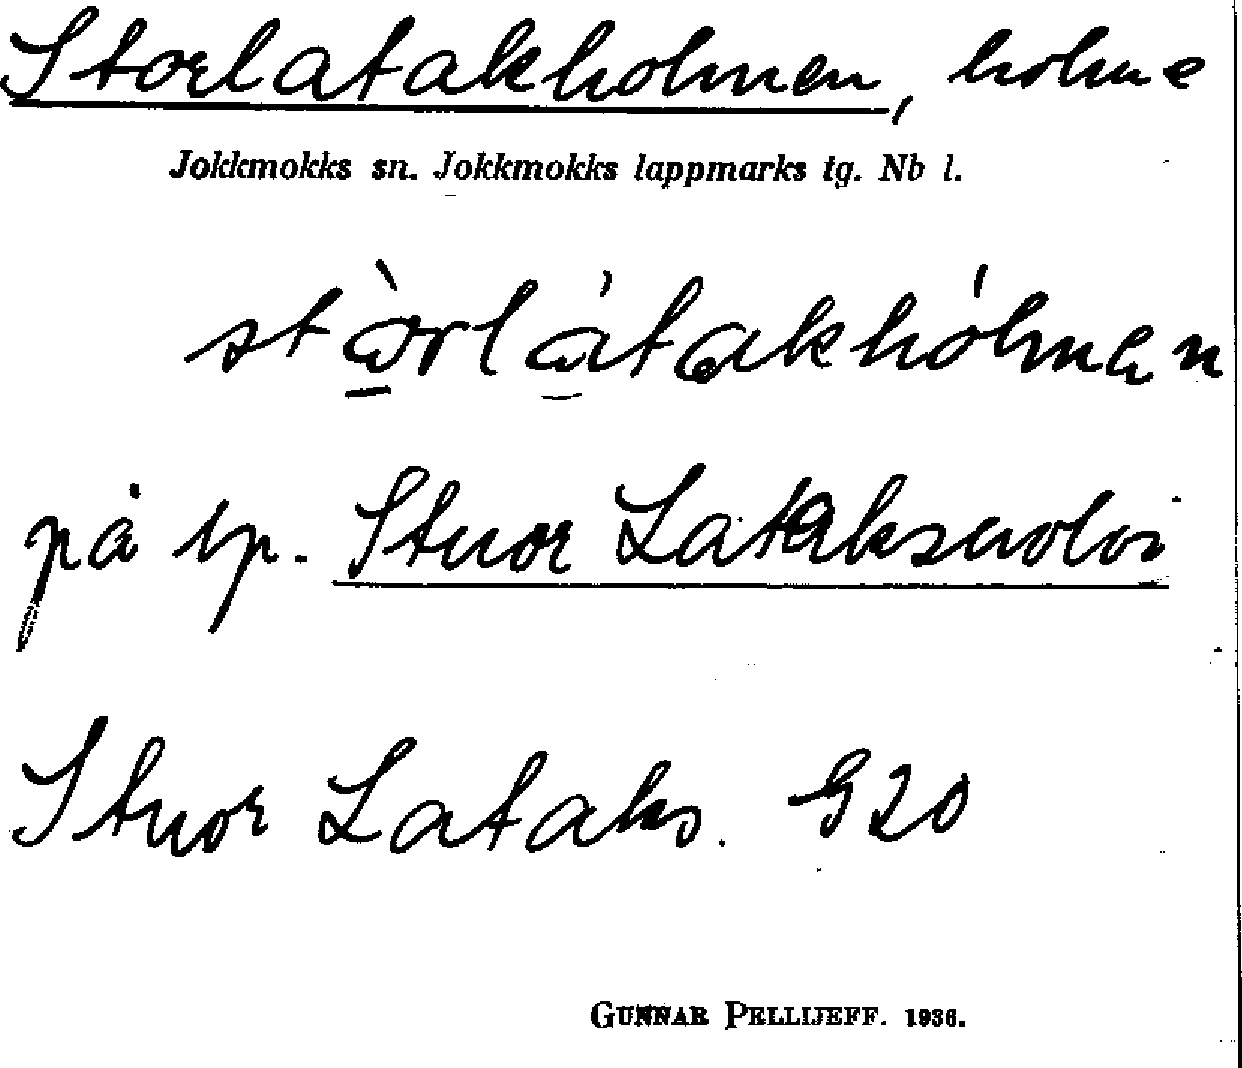 Storlatakholmen, holme
Jokkmokks sn. Jokkmokks lappmarks tg. Nb l.
stòrlátakhólmen
på lp. Stuor Latakssuoloi
Stuor Lataks. G20
GUNNAR PELLIJEFF. 1936.